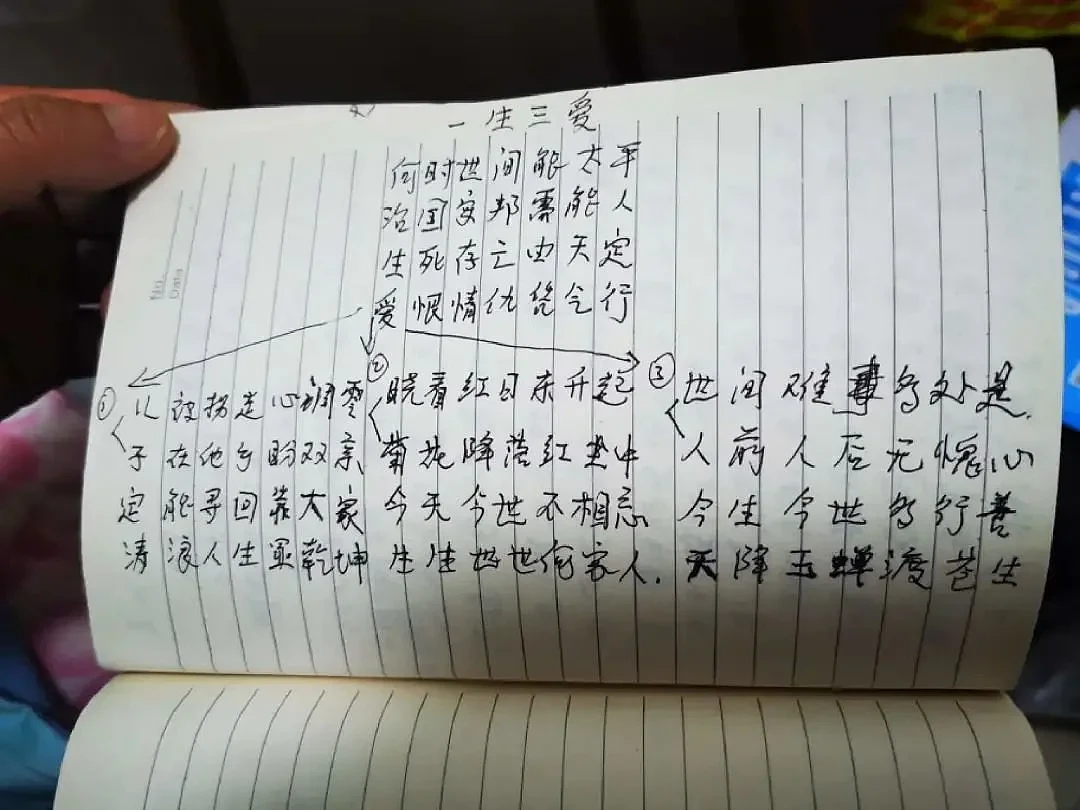 一生三爱
何时世间能太平
治国安邦需能人
生死存亡由天定
爱恨情仇终今行
①
儿被拐走心凋零
子在他乡盼双亲
定能寻回靠大家
清浪人生显乾坤
②
晓看红日东升起
菊花降落红尘中
今天今世不相忘
生生世世何家人.
③
世间难事多处是.
人前人后无愧心
今生今世多行善
天降玉蝉渡苍生
No.
Date